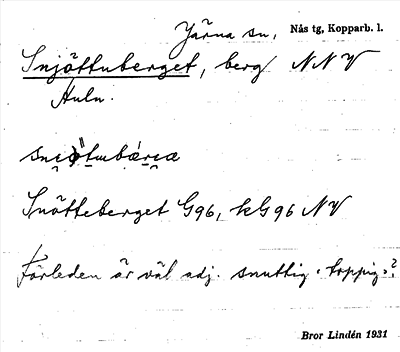 Järna sn, Nås tg, Kopparb. l.
Snjöttuberget, berg NNV
Huln.
Snötteberget G96, kG96 NV
Förleden är väl adj. snuttig "toppig"?
Bror Lindén 1931